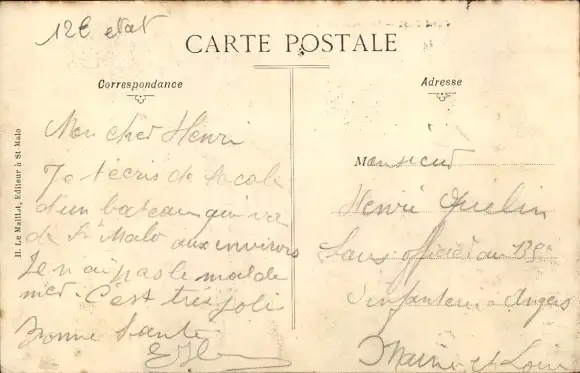 12€ etat
CARTE POSTALE
Correspondance
Adresse
H. Le Maillot, Editeur à St-Malo
Mon cher Henri
Je t'écris de
d'un bateau qui va
de St Malo aux environs
Je n'ai pas le mal de
mer. C'est très joli
Bonne Santé
Monsieur
Henri Guélin
Sous officier au 135e
d'infanterie Angers
Maine et Loire